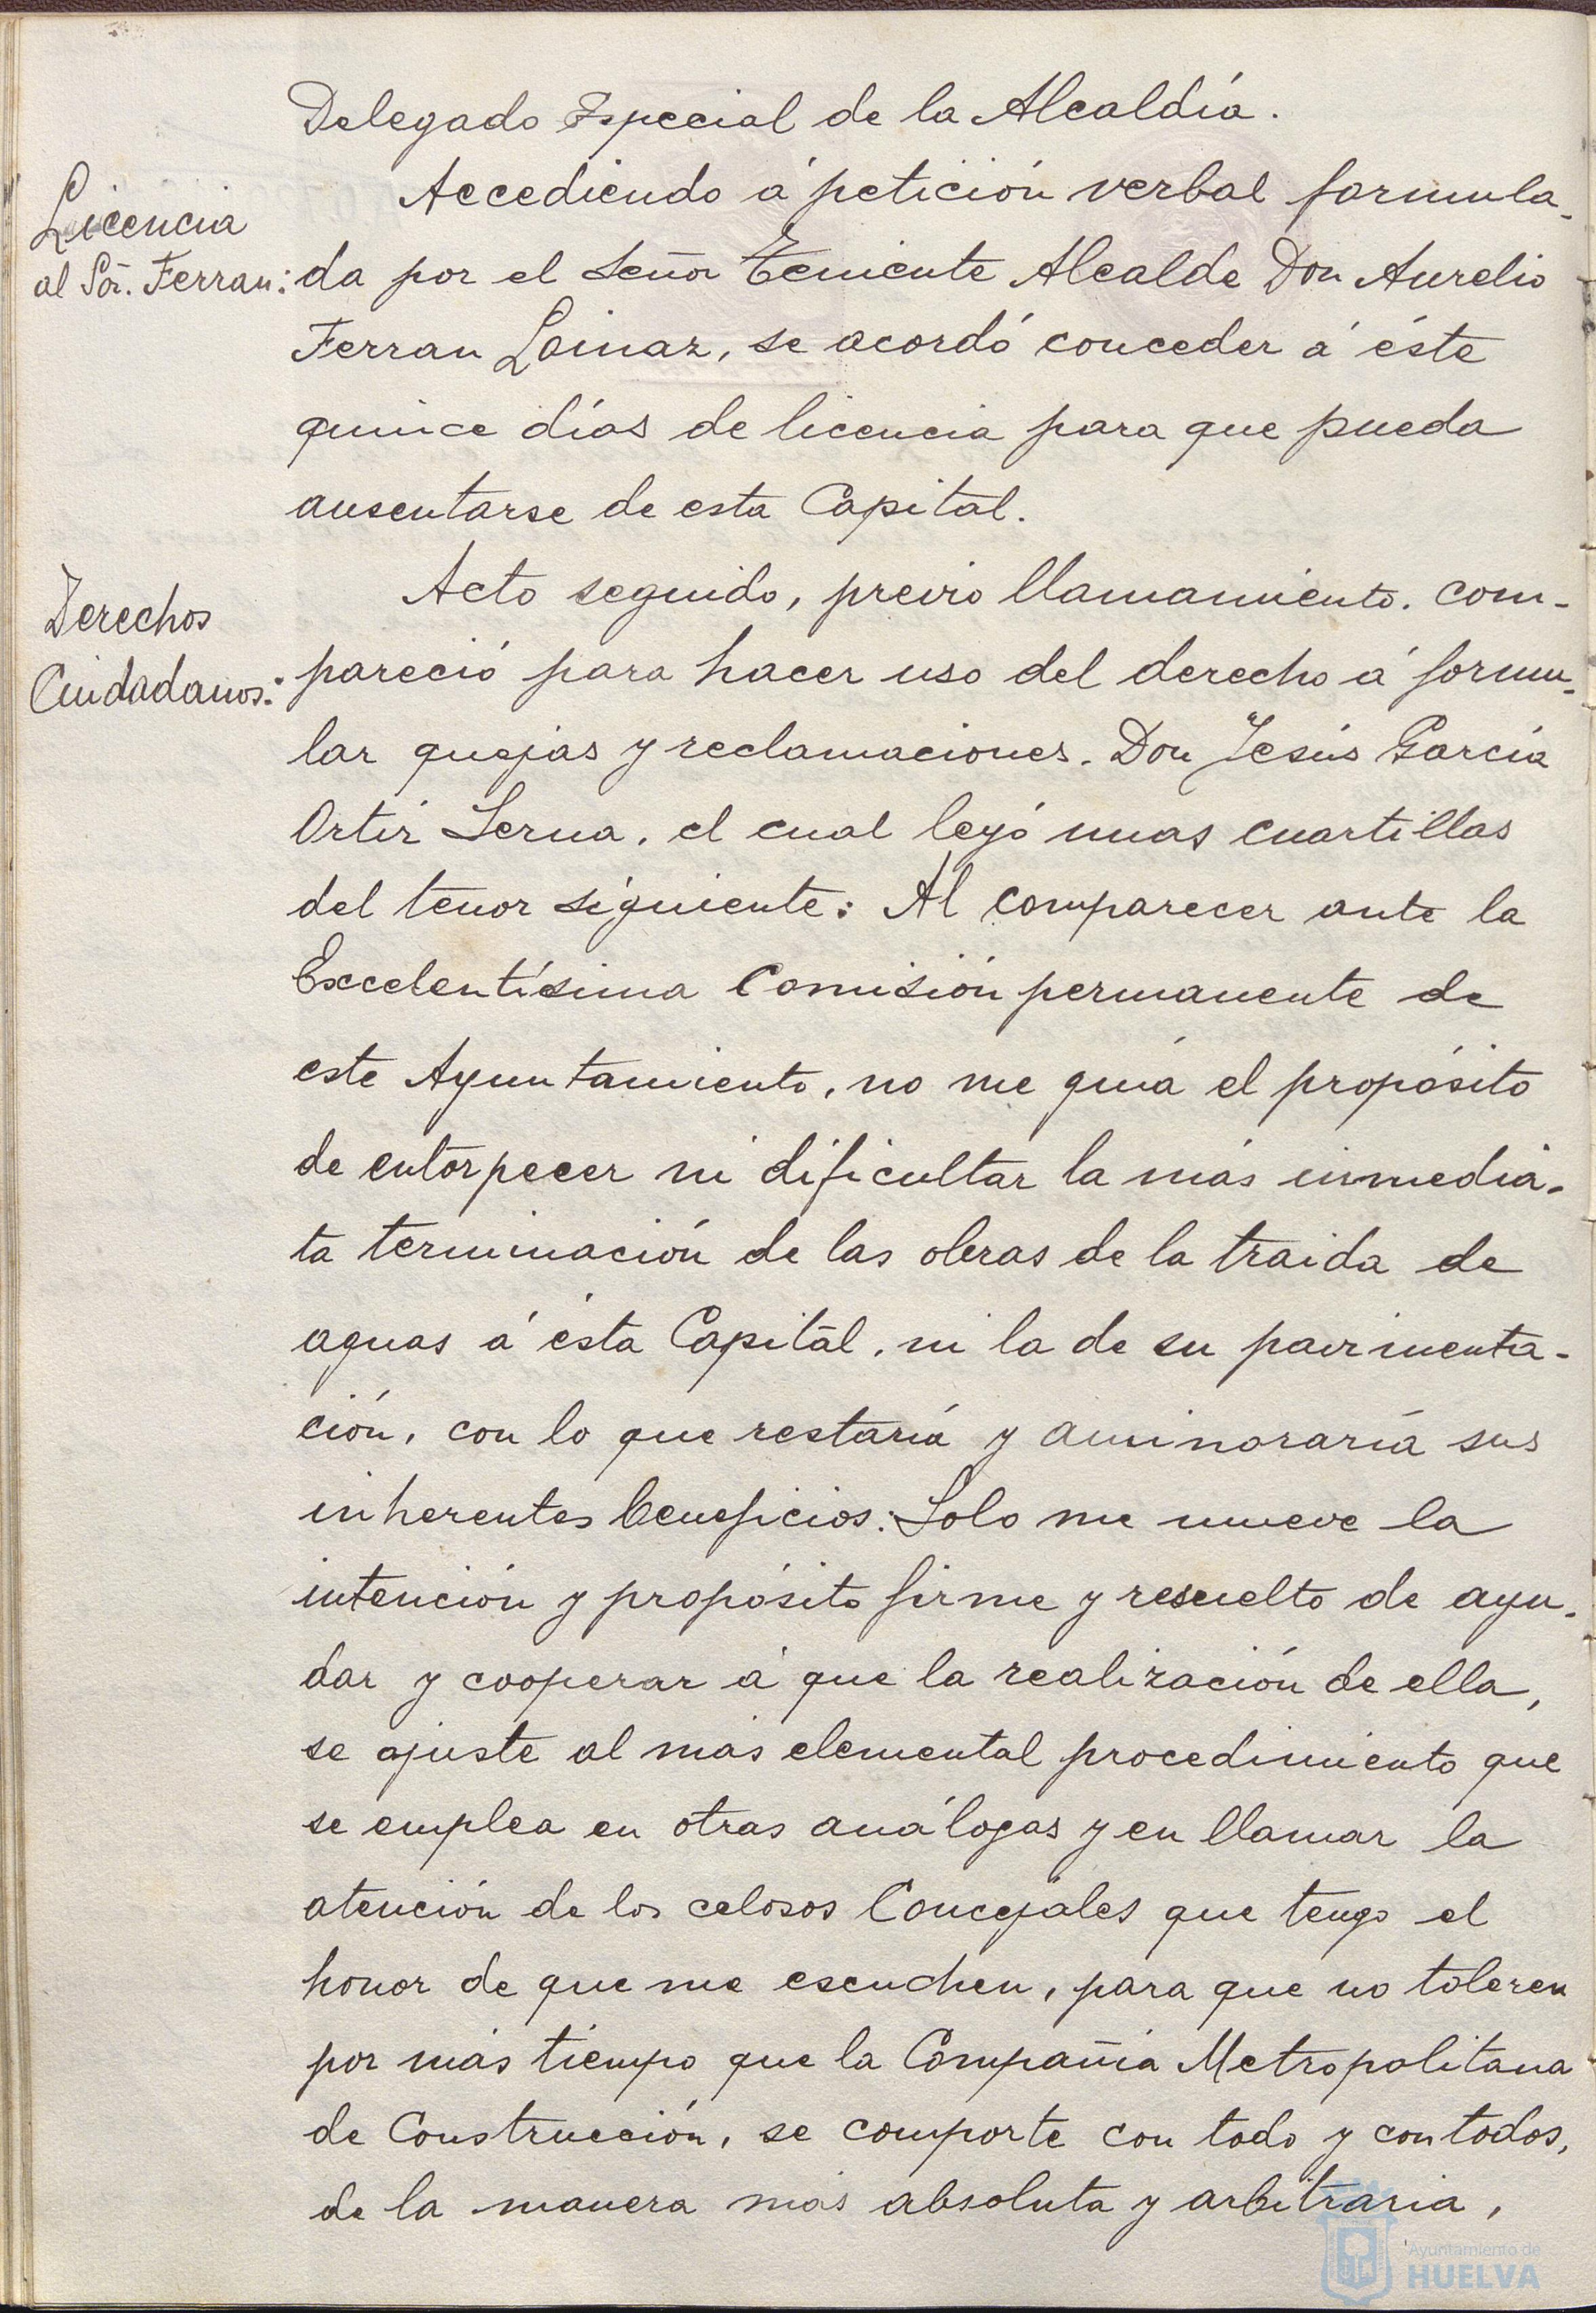 Delegado Especial de la Alcaldía.
Licencia
al Sor. Ferran:
Accediendo á petición verbal formula-
da por el Señor Teniente Alcalde Don Aurelio
Ferran Loinaz, se acordó conceder á éste
quince días de licencia para que pueda
ausentarse de esta Capital.
Derechos
Ciudadanos:
Acto seguido, previo llamamiento, com-
pareció para hacer uso del derecho á formu-
lar quejas y reclamaciones. Don Jesús García
Ortiz Serna, el cual leyó unas cuartillas
del tenor siguiente: Al comparecer ante la
Excelentísima Comisión permanente de
este Ayuntamiento, no me guía el propósito
de entorpecer ni dificultar la más inmedia-
ta terminación de las obras de la traida de
aguas á ésta Capital, ni la de su pavimenta-
ción, con lo que restaría y aminoraría sus
inherentes beneficios: Solo me mueve la
intención y propósito firme y resuelto de ayu-
dar y cooperar á que la realización de ella,
se ajuste al más elemental procedimiento que
se emplea en otras análogas y en llamar la
atención de los celosos Concejales que tengo el
honor de que me escuchen, para que no toleren
por más tiempo que la Compañía Metropolitana
de Construcción, se comporte con todo y con todos,
de la manera más absoluta y arbitraria,
Ayuntamiento de
HUELVA